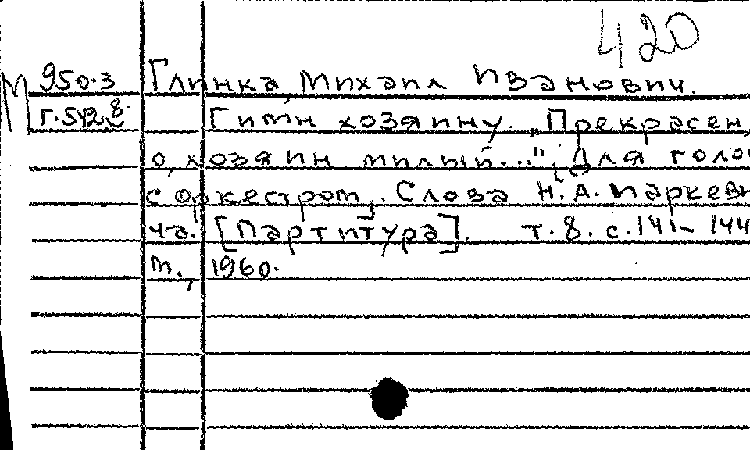 420
М 950.3 Глинка, Михаил Иванович.
Г.542 8. Гимн хозяину. „Прекрасен,
о, хозяин милый..." Для голо
с оркестром. Слова Н.А. Маркеви
ча. [Партитура]. т.8. с.141-144
м., 1960.